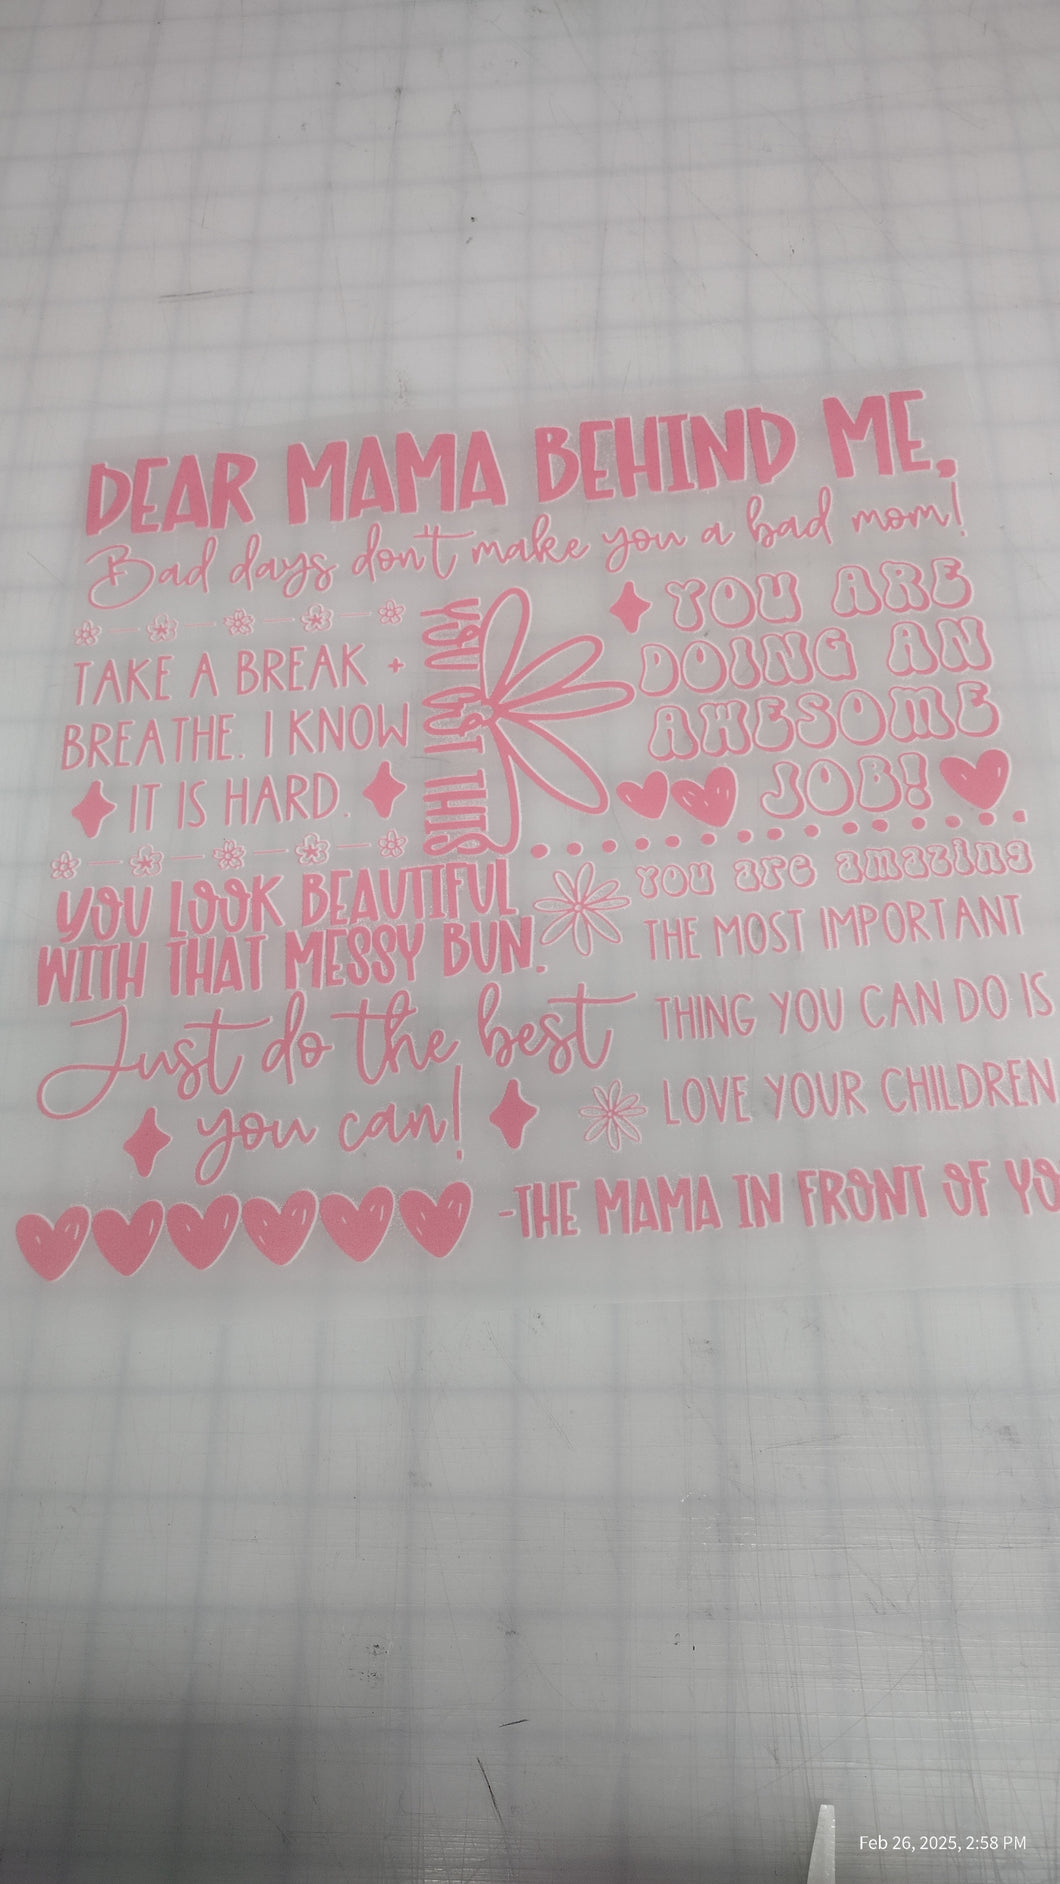 DEAR MAMA BEHIND ME,
Bad days don't make you a bad mom!
TAKE A BREAK +
BREATHE. I KNOW
IT IS HARD.
YOU GOT THIS
YOU ARE
DOING AN
AWESOME
JOB!
YOU LOOK BEAUTIFUL
WITH THAT MESSY BUN.
Just do the best
you can!
You are amazing
THE MOST IMPORTANT
THING YOU CAN DO IS
LOVE YOUR CHILDREN
-THE MAMA IN FRONT OF YO
Feb 26, 2025, 2:58 PM